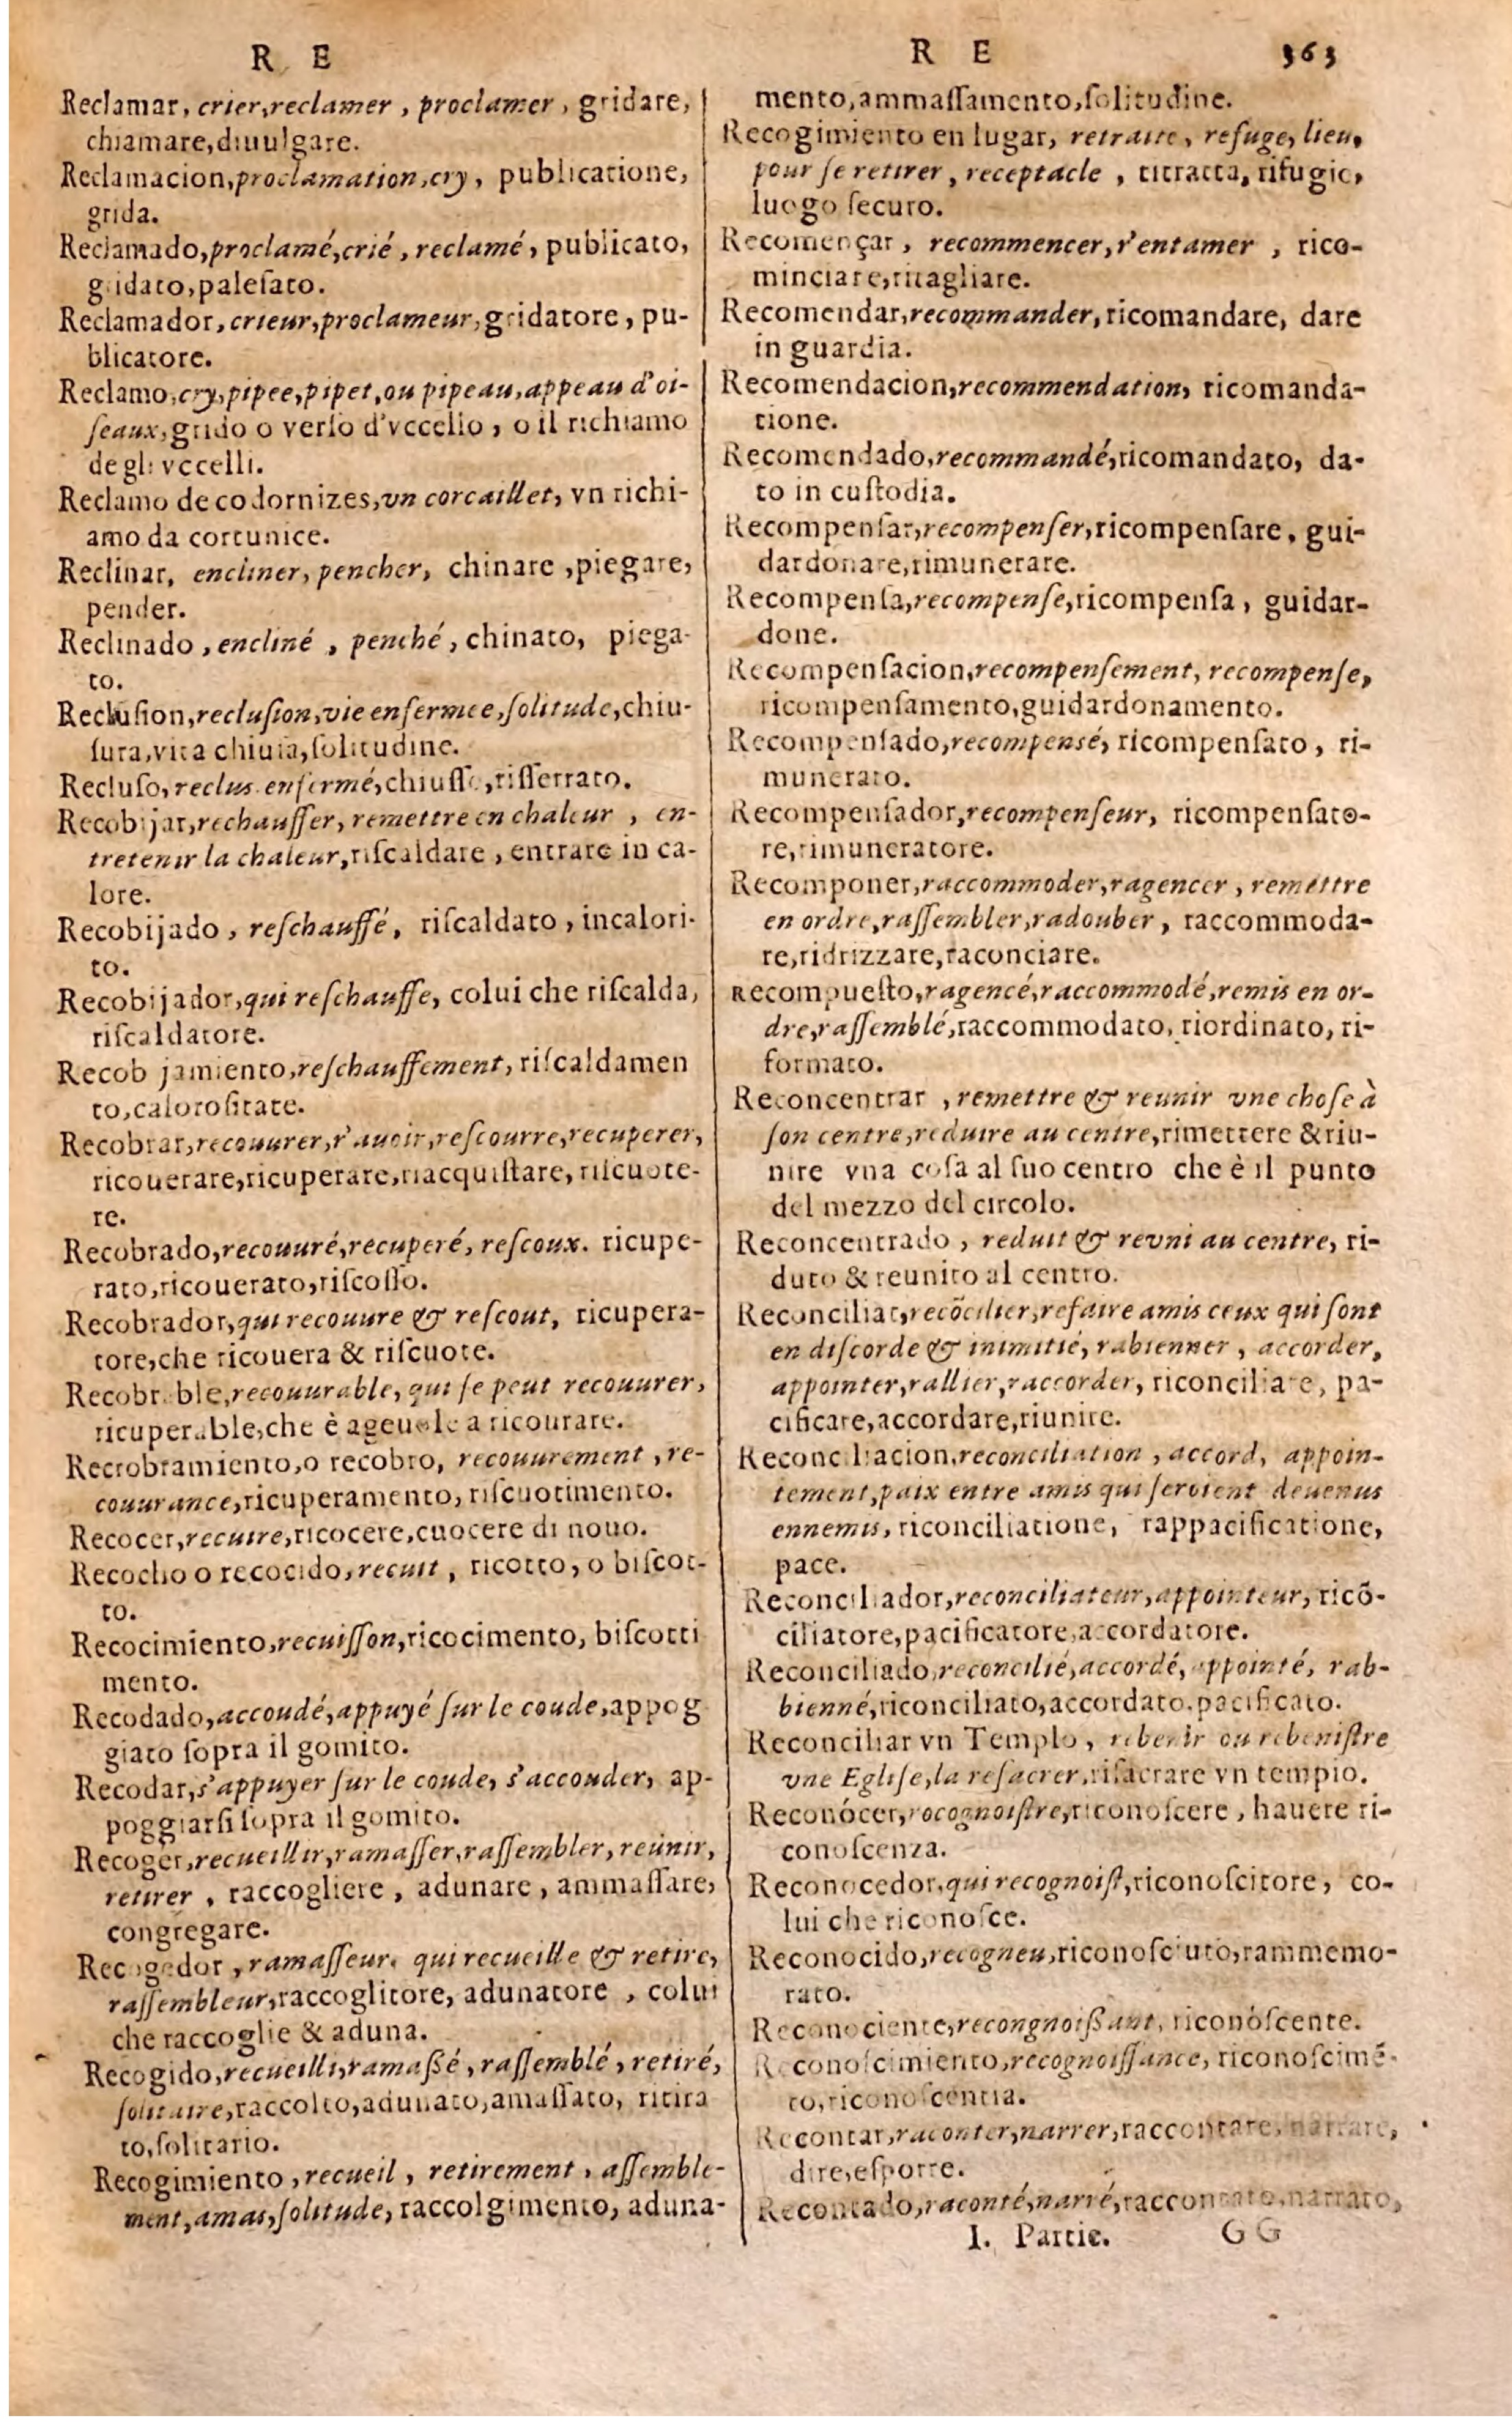 R E
Reclamar, crier, reclamer, proclamer, gridare,
chiamare, diuulgare.
Reclamacion, proclamation, cry, publicatione,
grida.
Reclamado, proclamé, crié, reclamé, publicato,
gridato, palesato.
Reclamador, crieur, proclameur, gridatore, pu-
blicatore.
Reclamo, cry, pipee, pipet, ou pipeau, appeau d'oi-
ſeaux, grido o verſo d'vccello, o il richiamo
degli vccelli.
Reclamo de codornizes, vn corcaillet, vn richi-
amo da cotunice.
Reclinar, encliner, pencher, chinare, piegare,
pender.
Reclinado, encliné, penché, chinato, piega-
to.
Recluſion, recluſion, vie enfermee, ſolitude, chiu-
ſura, vita chiuſa, ſolitudine.
Recluſo, reclus enfermé, chiuſſo, riſſerrato.
Recobijar, rechauffer, remettre en chaleur, en-
tretenir la chaleur, riſcaldare, entrare in ca-
lore.
Recobijado, reſchauffé, riſcaldato, incalori-
to.
Recobijador, qui reſchauffe, colui che riſcalda,
riſcaldatore.
Recob jamiento, reſchauffement, riſcaldamen
to, caloroſitate.
Recobrar, recouurer, r'auoir, reſcourre, recuperer,
ricouerare, ricuperare, riacquiſtare, riſcuote-
re.
Recobrado, recouuré, recuperé, reſcoux. ricupe-
rato, ricouerato, riſcoſſo.
Recobrador, qui recouure & reſcout, ricupera-
tore, che ricouera & riſcuote.
Recobrable, recouurable, qui ſe peut recouurer,
ricuperable, che è ageuole a ricourare.
Recrobramiento, o recobro, recouurement, re-
couurance, ricuperamento, riſcuotimento.
Recocer, recuire, ricocere, cuocere di nouo.
Recocho o recocido, recuit, ricotto, o biſcot-
to.
Recocimiento, recuiſſon, ricocimento, biſcotti
mento.
Recodado, accoudé, appuyé ſur le coude, appog
giato ſopra il gomito.
Recodar, s'appuyer ſur le coude, s'accouder, ap-
poggiarſi ſopra il gomito.
Recoger, recueillir, ramaſſer, raſſembler, reünir,
retirer, raccogliere, adunare, ammaſſare,
congregare.
Recogedor, ramaſſeur. qui recueille & retire,
raſſembleur, raccoglitore, adunatore, colui
che raccoglie & aduna.
Recogido, recueilli, ramaßé, raſſemblé, retiré,
ſolitaire, raccolto, adunato, amaſſato, ritira
to, ſolitario.
Recogimiento, recueil, retirement, aſſemble-
ment, amas, ſolitude, raccolgimento, aduna-
R E 363
mento, ammaſſamento, ſolitudine.
Recogimiento en lugar, retraite, refuge, lieu,
pour ſe retirer, receptacle, titratta, rifugio,
luogo ſecuro.
Recomençar, recommencer, r'entamer, rico-
minciare, ritagliare.
Recomendar, recommander, ricomandare, dare
in guardia.
Recomendacion, recommendation, ricomanda-
tione.
Recomendado, recommandé, ricomandato, da-
to in cuſtodia.
Recompenſar, recompenſer, ricompenſare, gui-
dardonare, rimunerare.
Recompenſa, recompenſe, ricompenſa, guidar-
done.
Recompenſacion, recompenſement, recompenſe,
ricompenſamento, guidardonamento.
Recompenſado, recompensé, ricompenſato, ri-
munerato.
Recompenſador, recompenſeur, ricompenſato-
re, rimuneratore.
Recomponer, raccommoder, ragencer, remettre
en ordre, raſſembler, radouber, raccommoda-
re, ridrizzare, raconciare.
Recompueſto, ragencé, raccommodé, remis en or-
dre, raſſemblé, raccommodato, riordinato, ri-
formato.
Reconcentrar, remettre & reunir vne choſe à
ſon centre, reduire au centre, rimettere & riu-
nire vna coſa al ſuo centro che è il punto
del mezzo del circolo.
Reconcentrado, reduit & revni au centre, ri-
duto & reunito al centro.
Reconciliar, recõcilier, refaire amis ceux qui ſont
en diſcorde & inimitié, rabienner, accorder,
appointer, rallier, raccorder, riconciliare, pa-
cificare, accordare, riunire.
Reconciliacion, reconciliation, accord, appoin-
tement, paix entre amis qui ſeroient deuenus
ennemis, riconciliatione, rappacificatione,
pace.
Reconciliador, reconciliateur, appointeur, ricõ-
ciliatore, pacificatore, accordatore.
Reconciliado, reconcilié, accordé, appointé, rab-
bienné, riconciliato, accordato, pacificato.
Reconciliar vn Templo, rebenir ou rebeniſtre
vne Egliſe, la reſacrer, riſacrare vn tempio.
Reconócer, rocognoiſtre, riconoſcere, hauere ri-
conoſcenza.
Reconocedor, qui recognoiſt, riconoſcitore, co-
lui che riconoſce.
Reconocido, recogneu, riconoſciuto, rammemo-
rato.
Reconociente, recongnoißant, riconoſcente.
Reconoſcimiento, recognoiſſance, riconoſcimẽ-
to, riconoſcentia.
Recontar, raconter, narrer, raccontare, narrare,
dire, eſporre.
Recontado, raconté, narré, raccontato, narrato,
I. Partie. GG